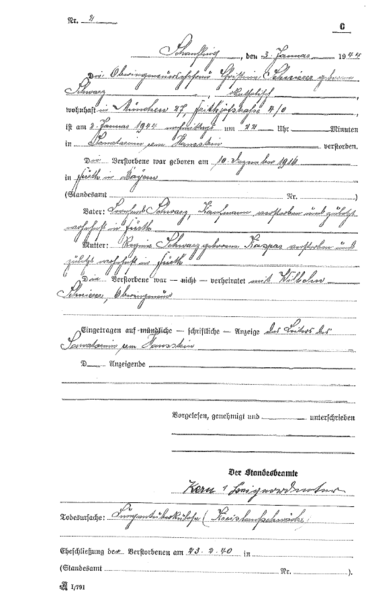 Nr. 2
C
, den 3. Januar 1944
Die Oberingenieursehefrau Christine Schreiner geborene
Schwarz, katholisch
wohnhaft in München 27,
ist am 2. Januar 1944 um 22 Uhr Minuten
in Sanatorium verstorben.
Die Verstorbene war geboren am 10. Dezember 1916
in Fürth in Bayern
(Standesamt Nr. )
Vater: Schwarz, Kaufmann verstorben und zuletzt
wohnhaft in Fürth
Mutter: Regina Schwarz geborene verstorben und
zuletzt wohnhaft in Fürth
Die Verstorbene war — nicht — verheiratet mit Wilhelm
Schreiner, Oberingenieur
Eingetragen auf mündliche — schriftliche — Anzeige des Leiters des
Sanatoriums
D Anzeigende
Vorgelesen, genehmigt und unterschrieben
Der Standesbeamte
Kern
Todesursache: Lungentuberkulose (Kreislaufschwäche)
Eheschließung der Verstorbenen am 23.2.40 in
(Standesamt Nr. ).
I/791